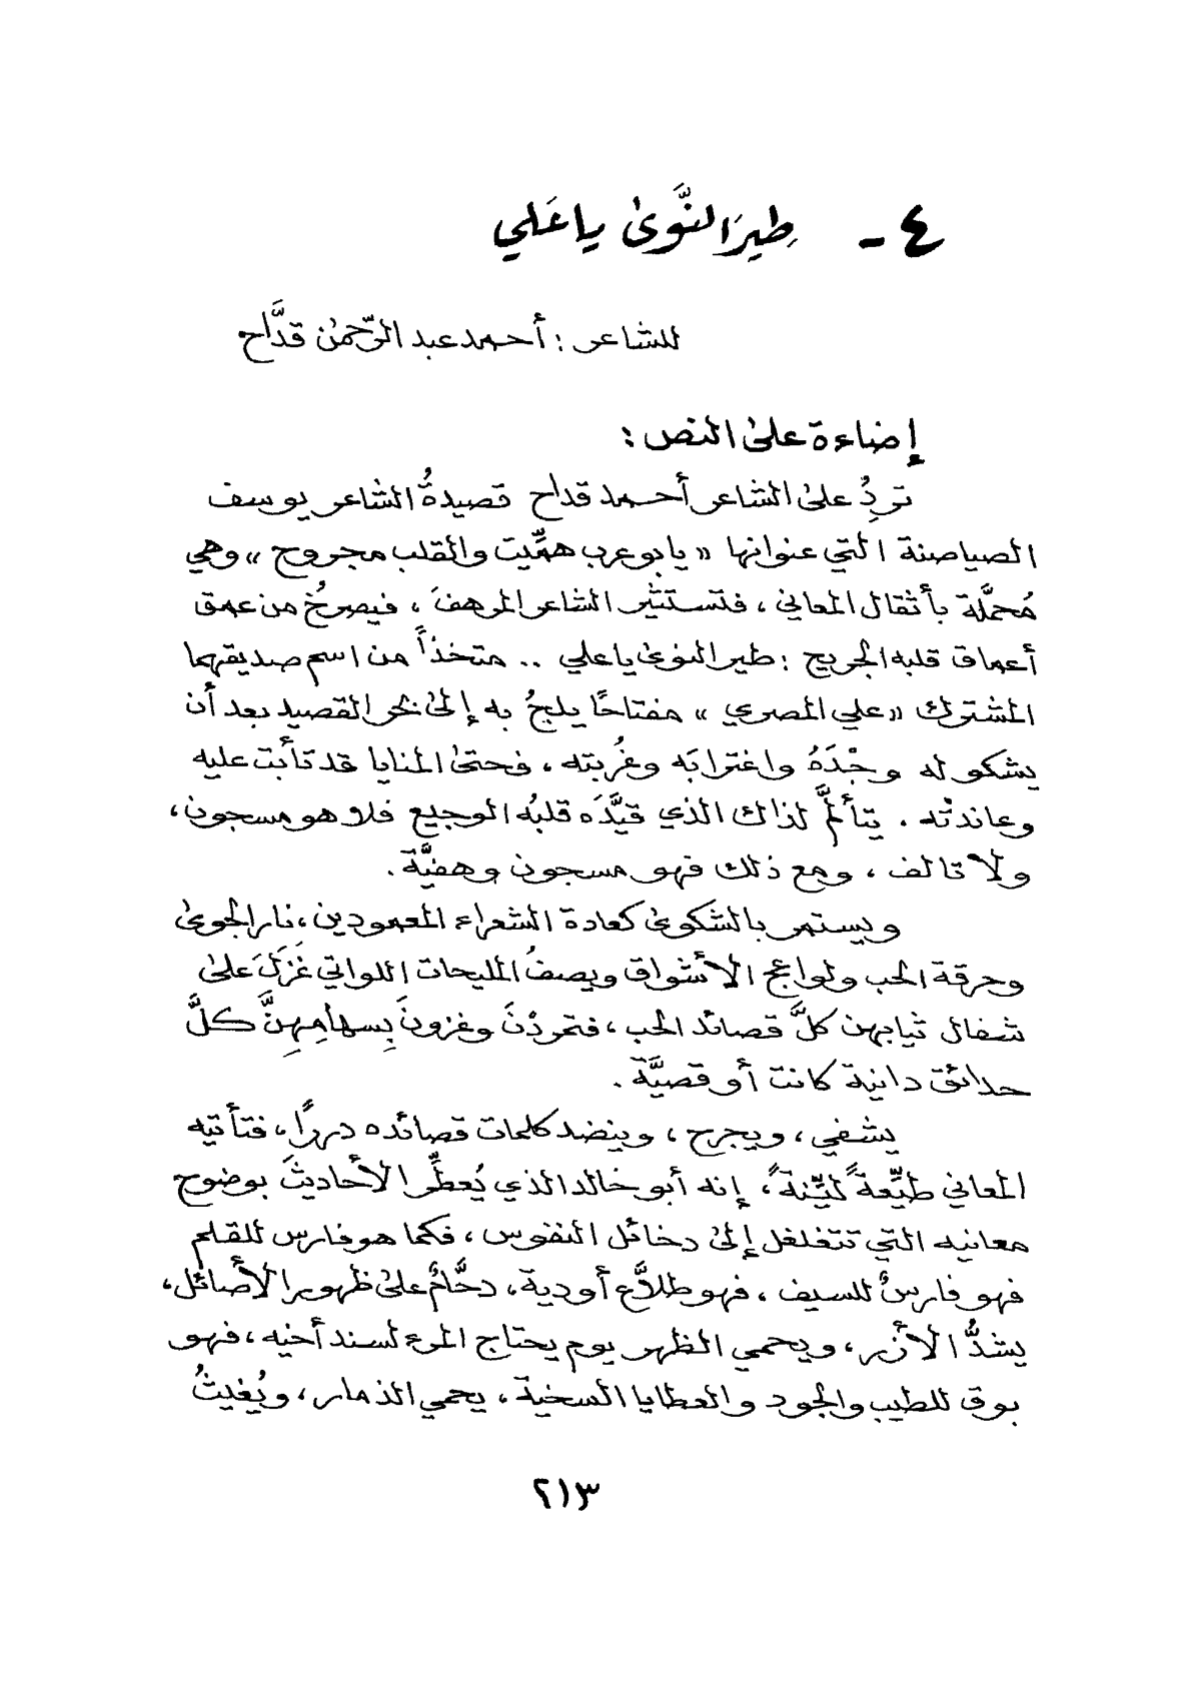 ٤ - طِيرَ النَّوىٰ يا عَلي
للشاعر : أحمد عبد الرّحمٰن قدَّاح
إضاءة علىٰ النص :
تردُ علىٰ الشاعر أحمد قداح قصيدةُ الشاعر يوسف
الصياصنة التي عنوانها « يا بو عرب همِّيت والقلب مجروح » وهي
مُحمَّلة بأثقال المعاني ، فتستثير الشاعر المرهفَ ، فيصرخُ من عمق
أعماق قلبه الجريح : طير النوىٰ يا علي .. متخذاً من اسم صديقهما
المشترك « علي المصري » مفتاحًا يلجُ به إلىٰ بحر القصيد بعد أن
يشكو له وجْدَهُ واغترابَه وغُربته ، فحتىٰ المنايا قد تأبت عليه
وعاندتْه . يتألَّم لذاك الذي قيَّدَه قلبُه الوجيع فلا هو مسجون ،
ولا تالف ، ومع ذلك فهو مسجون وهفيَّة .
ويستمر بالشكوىٰ كعادة الشعراء المعمودين ، نار الجوىٰ
وحرقة الحب ولواعج الأشواق ويصفُ المليحات اللواتي غَزَلَ علىٰ
شفال ثيابهن كلَّ قصائد الحب ، فتمردْنَ وغزونَ بِسهامِهِنَّ كلَّ
حدائق دانية كانت أو قصيَّة .
يشفي ، ويجرح ، وينضد كلمات قصائده دررًا ، فتأتيه
المعاني طيِّعةً ليِّنةً ، إنه أبو خالد الذي يُعطِّر الأحاديثَ بوضوح
معانيه التي تتغلغل إلىٰ دخائل النفوس ، فكما هو فارس للقلم
فهو فارسٌ للسيف ، فهو طلاَّع أودية ، دحَّامٌ علىٰ ظهور الأصائل ،
يشدُّ الأزر ، ويحمي الظهر يوم يحتاج المرء لسند أخيه ، فهو
بوق للطيب والجود والعطايا السخية ، يحمي الذمار ، ويُغيثُ
٢١٣